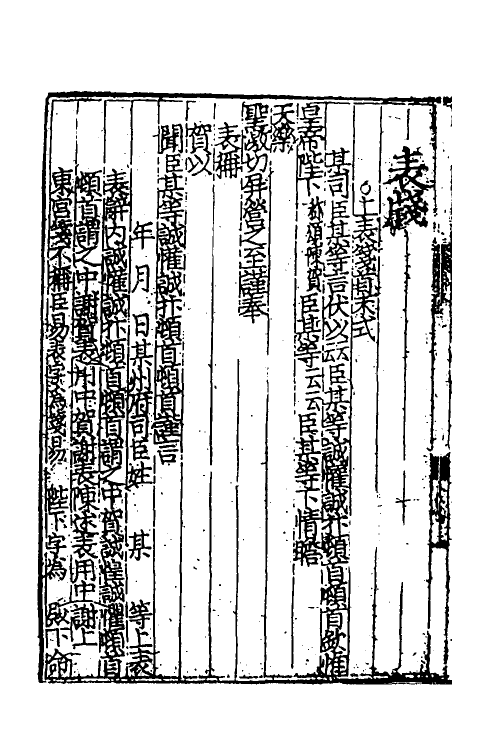 表牋
○上表箋首末式
某司臣某等言伏以云云臣某等誠懽誠忭頓首頓首欽惟
皇帝陛下称頌陳賀臣某等云云臣某等下情瞻
天樂
聖激切屏營之至謹奉
表稱
賀以
聞臣某等誠懽誠忭頓首頓首謹言
年 月 日某州府司臣姓 某 等上表
表辭內誠懽誠忭頓首頓首謂之中賀誠惶誠懼頓首
頓首謂之中謝賀表用中賀謝表陳述表用中謝上
東宮箋不稱臣易表字為箋易 陛下字為 殿下